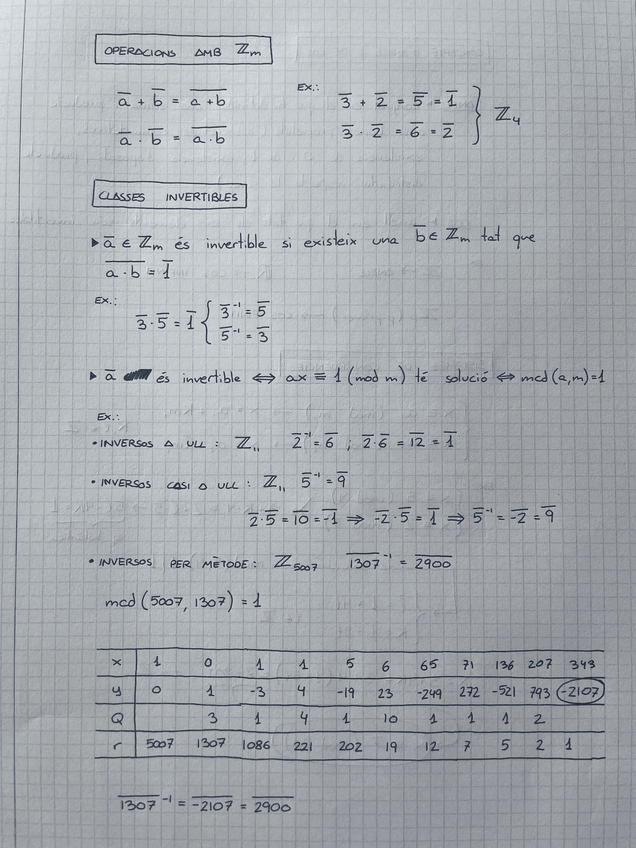 OPERACIONS AMB ℤₘ
a̅ + b̅ = a̅+̅b̅
a̅ · b̅ = a̅·̅b̅
EX.:
3̅ + 2̅ = 5̅ = 1̅
3̅ · 2̅ = 6̅ = 2̅
} ℤ₄
CLASSES INVERTIBLES
▶ a̅ ∈ ℤₘ és invertible si existeix una b̅ ∈ ℤₘ tat que
a̅·̅b̅ = 1̅
EX.:
3̅ · 5̅ = 1̅ { 3̅⁻¹ = 5̅
5̅⁻¹ = 3̅
▶ a̅ és invertible ⇔ ax ≡ 1 (mod m) té solució ⇔ mcd (a,m)=1
EX.:
• INVERSOS A ULL : ℤ₁₁ 2̅⁻¹ = 6̅ ; 2̅·6̅ = 1̅2̅ = 1̅
• INVERSOS CASI A ULL : ℤ₁₁ 5̅⁻¹ = 9̅
2̅·5̅ = 1̅0̅ = -̅1̅ ⇒ -̅2̅·5̅ = 1̅ ⇒ 5̅⁻¹ = -̅2̅ = 9̅
• INVERSOS PER MÈTODE : ℤ₅₀₀₇ 1̅3̅0̅7̅⁻¹ = 2̅9̅0̅0̅
mcd (5007, 1307) = 1
x 1 0 1 1 5 6 65 71 136 207 343
y 0 1 -3 4 -19 23 -249 272 -521 793 -2107
Q 3 1 4 1 10 1 1 1 2
r 5007 1307 1086 221 202 19 12 7 5 2 1
1̅3̅0̅7̅⁻¹ = -̅2̅1̅0̅7̅ = 2̅9̅0̅0̅